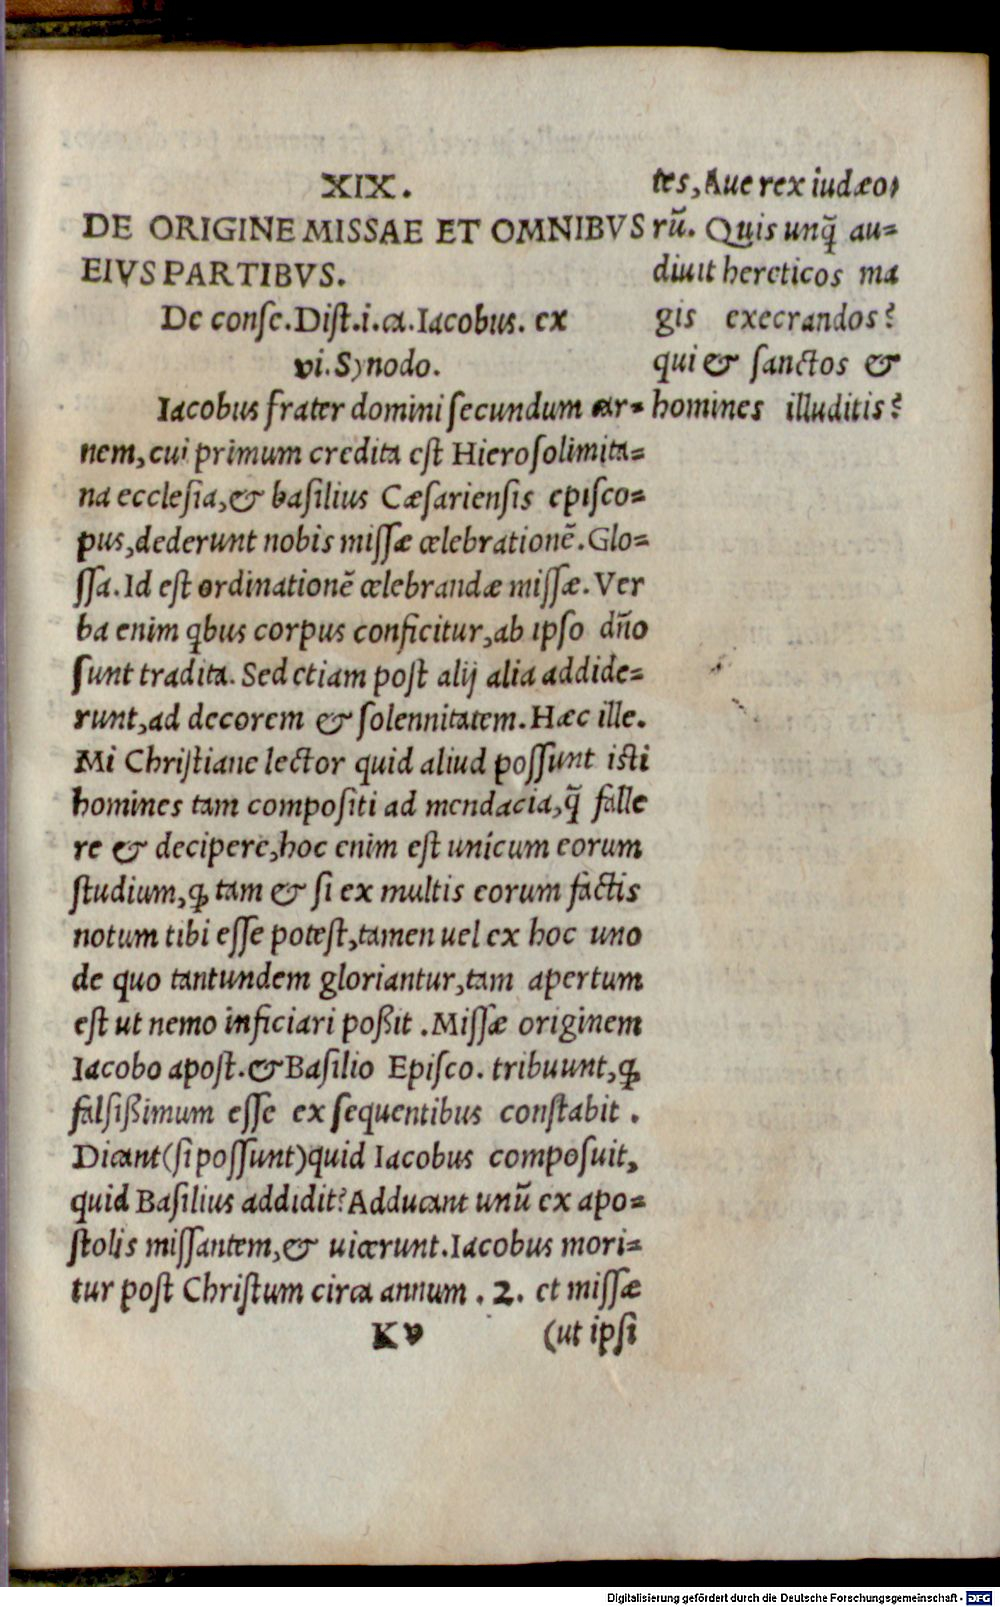 XIX.
DE ORIGINE MISSAE ET OMNIBVS
EIVS PARTIBVS.
De conse.Dist.i.ca.Iacobus. ex
vi.Synodo.
Iacobus frater domini secundum car=
nem,cui primum credita est Hierosolimita=
na ecclesia,& basilius Cæsariensis episco=
pus,dederunt nobis missæ celebrationē.Glo=
ssa.Id est ordinationē celebrandæ missæ.Ver
ba enim qbus corpus conficitur,ab ipso dño
sunt tradita. Sed etiam post alij alia addide=
runt,ad decorem & solennitatem.Hæc ille.
Mi Christiane lector quid aliud possunt isti
homines tam compositi ad mendacia,q̃ falle
re & decipere,hoc enim est unicum eorum
studium,ꝙ tam & si ex multis eorum factis
notum tibi esse potest,tamen uel ex hoc uno
de quo tantundem gloriantur,tam apertum
est ut nemo inficiari poßit .Missæ originem
Iacobo apost.& Basilio Episco. tribuunt,ꝙ
falsißimum esse ex sequentibus constabit .
Dicant(si possunt)quid Iacobus composuit,
quid Basilius addidit?Adducant unū ex apo=
stolis missantem,& uicerunt.Iacobus mori=
tur post Christum circa annum . 2. et missæ
K v (ut ipsi
tes,Aue rex iudæo,
rū. Quis unq̃ au=
diuit hereticos ma
gis execrandos?
qui & sanctos &
homines illuditis?
Digitalisierung gefördert durch die Deutsche Forschungsgemeinschaft - DFG